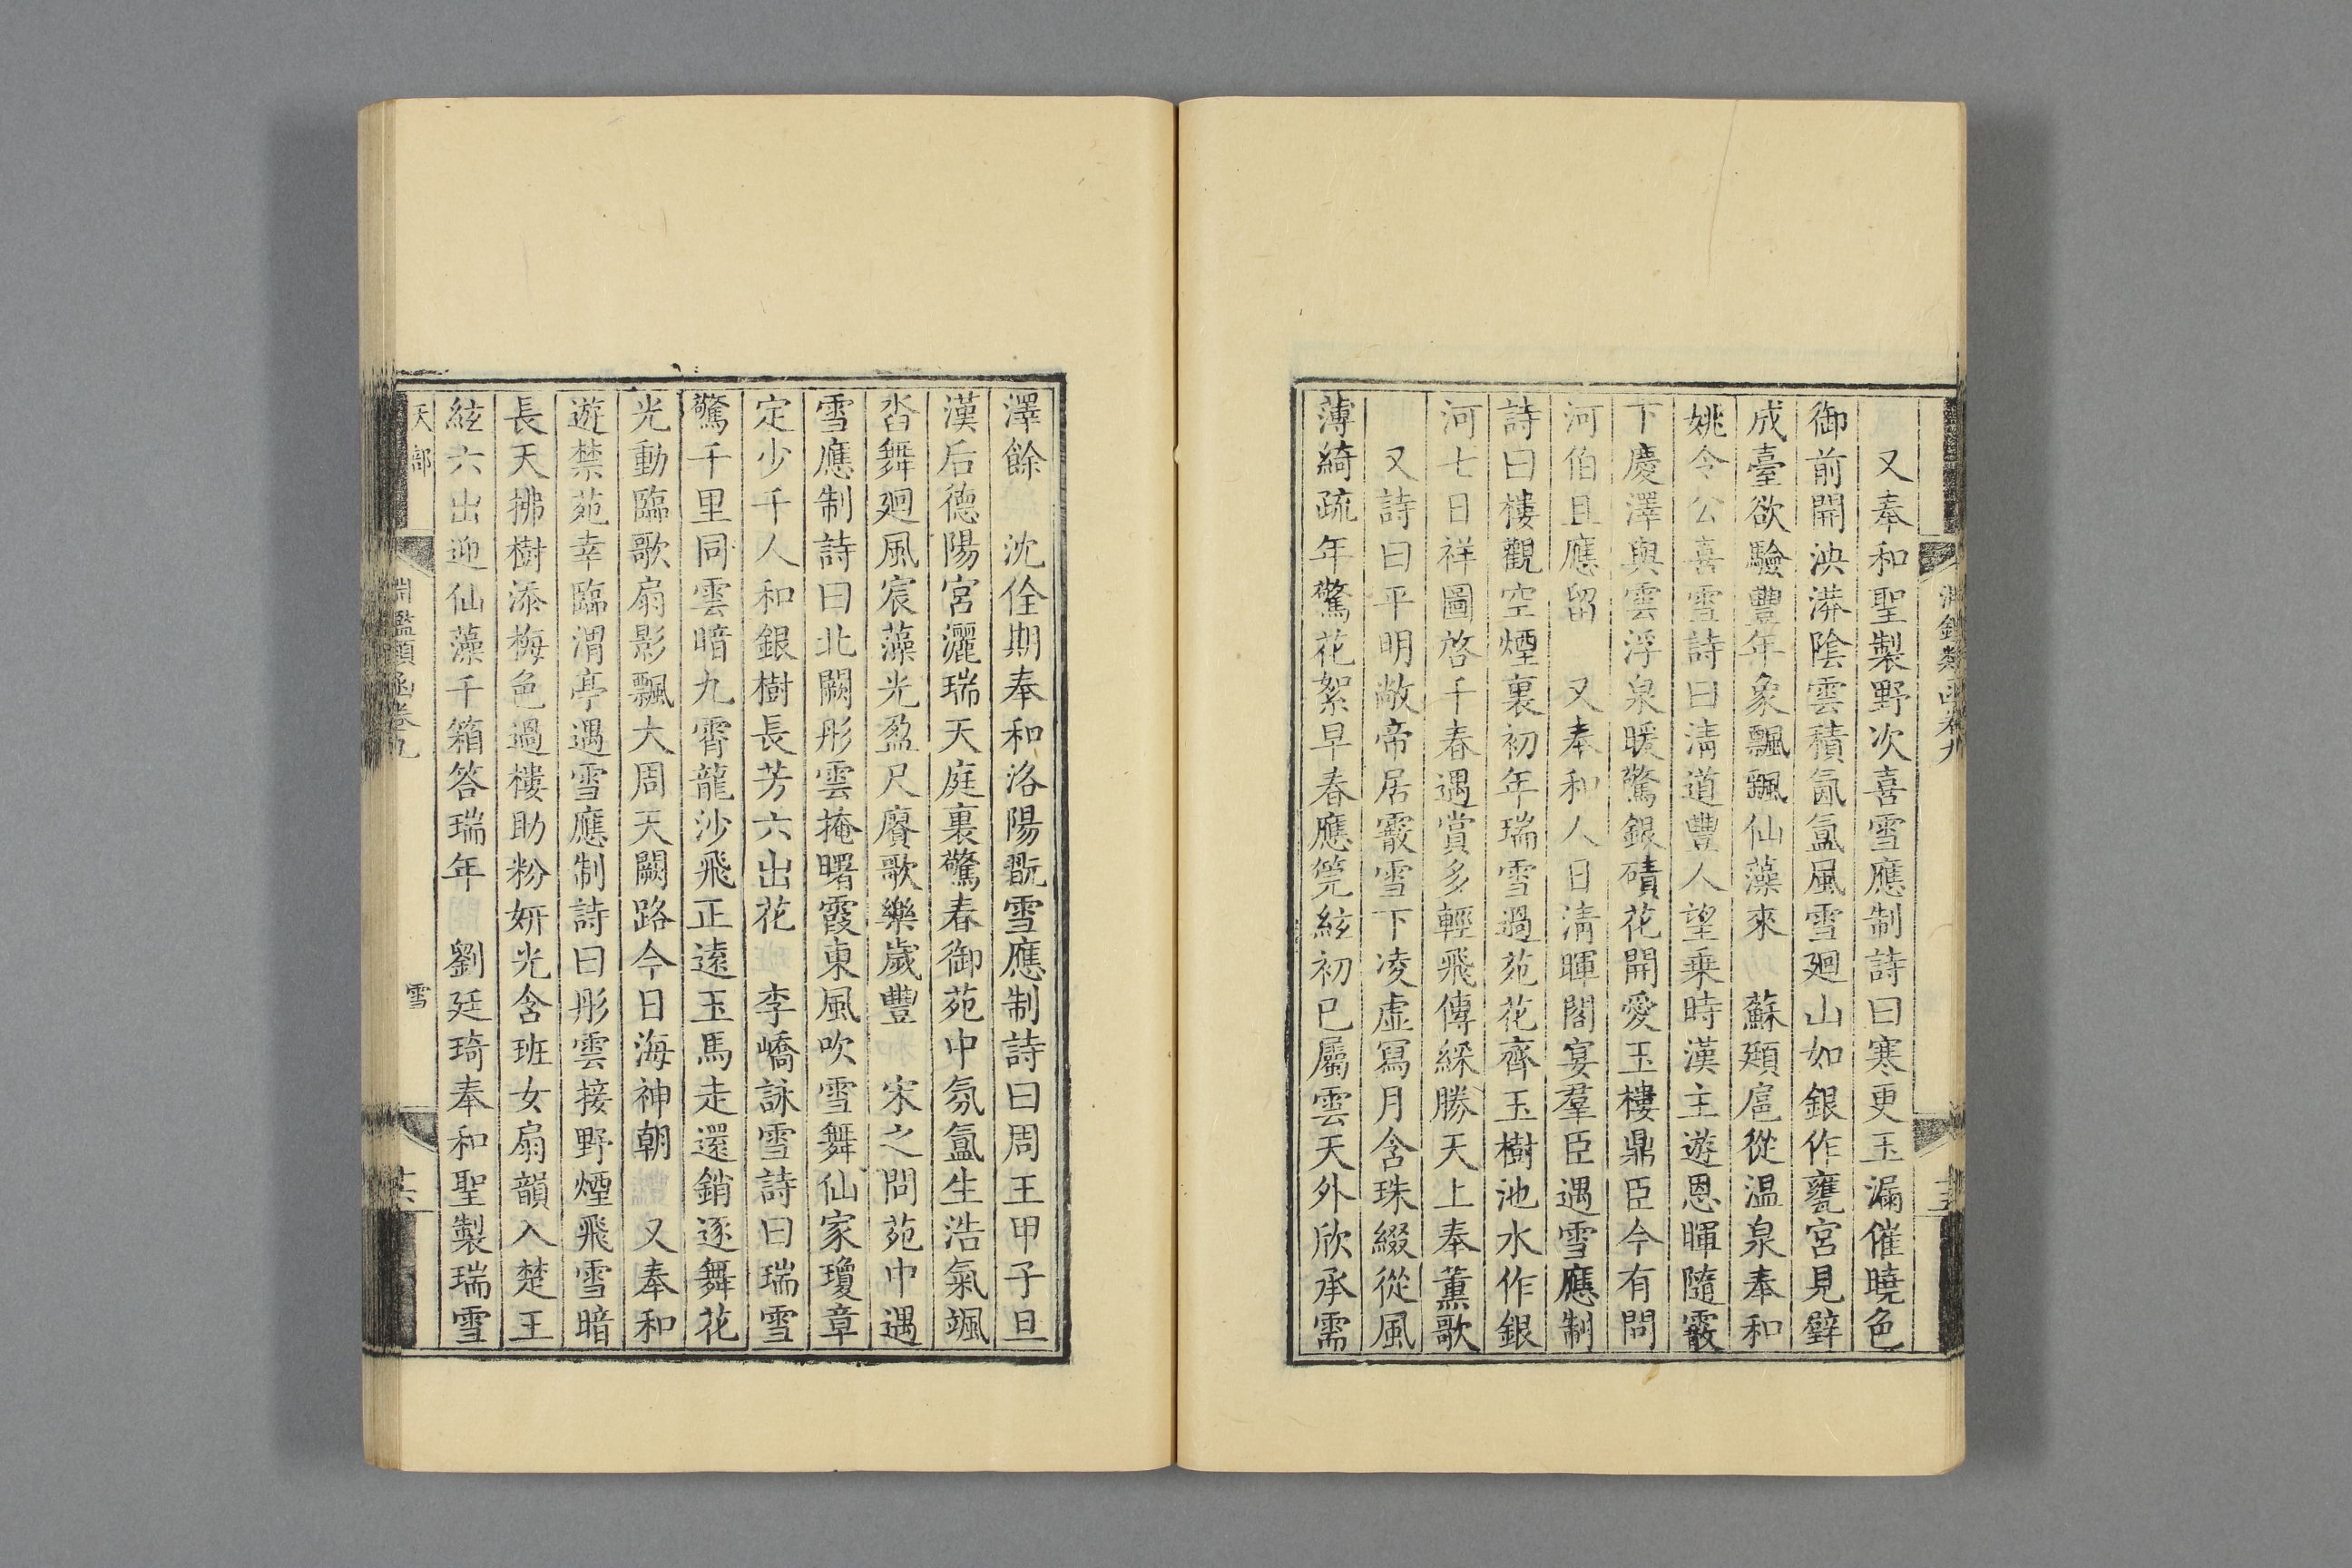 淵鑑類函卷九
十五
又奉和聖製野次喜雪應制詩曰寒更玉漏催曉色
御前開泱漭陰雲積氤氳風雪廻山如銀作甕宮見璧
成臺欲驗豐年象飄飄仙藻來 蘇頲扈從温泉奉和
姚令公喜雪詩曰清道豐人望乗時漢主遊恩暉隨霰
下慶澤與雲浮泉暖驚銀磧花開愛玉樓鼎臣今有問
河伯且應留 又奉和人日清暉閣宴羣臣遇雪應制
詩曰樓觀空煙裏初年瑞雪過苑花齊玉樹池水作銀
河七日祥圖啓千春遇賞多輕飛傳綵勝天上奉薰歌
又詩曰平明敞帝居霰雪下凌虚冩月含珠綴從風
薄綺疏年驚花絮早春應筦絃初已屬雲天外欣承霈
澤餘 沈佺期奉和洛陽翫雪應制詩曰周王甲子旦
漢后德陽宮灑瑞天庭裏驚春御苑中氛氳生浩氣颯
沓舞廻風宸藻光盈尺賡歌樂歲豐 宋之問苑中遇
雪應制詩曰北闕彤雲掩曙霞東風吹雪舞仙家瓊章
定少千人和銀樹長芳六出花 李嶠詠雪詩曰瑞雪
驚千里同雲暗九霄龍沙飛正遠玉馬走還銷逐舞花
光動臨歌扇影飄大周天闕路今日海神朝 又奉和
遊禁苑幸臨渭亭遇雪應制詩曰彤雲接野煙飛雪暗
長天拂樹添梅色過樓助粉妍光含班女扇韻入楚王
絃六出迎仙藻千箱答瑞年 劉廷琦奉和聖製瑞雪
天部
淵鑑類函卷九
雪
十六